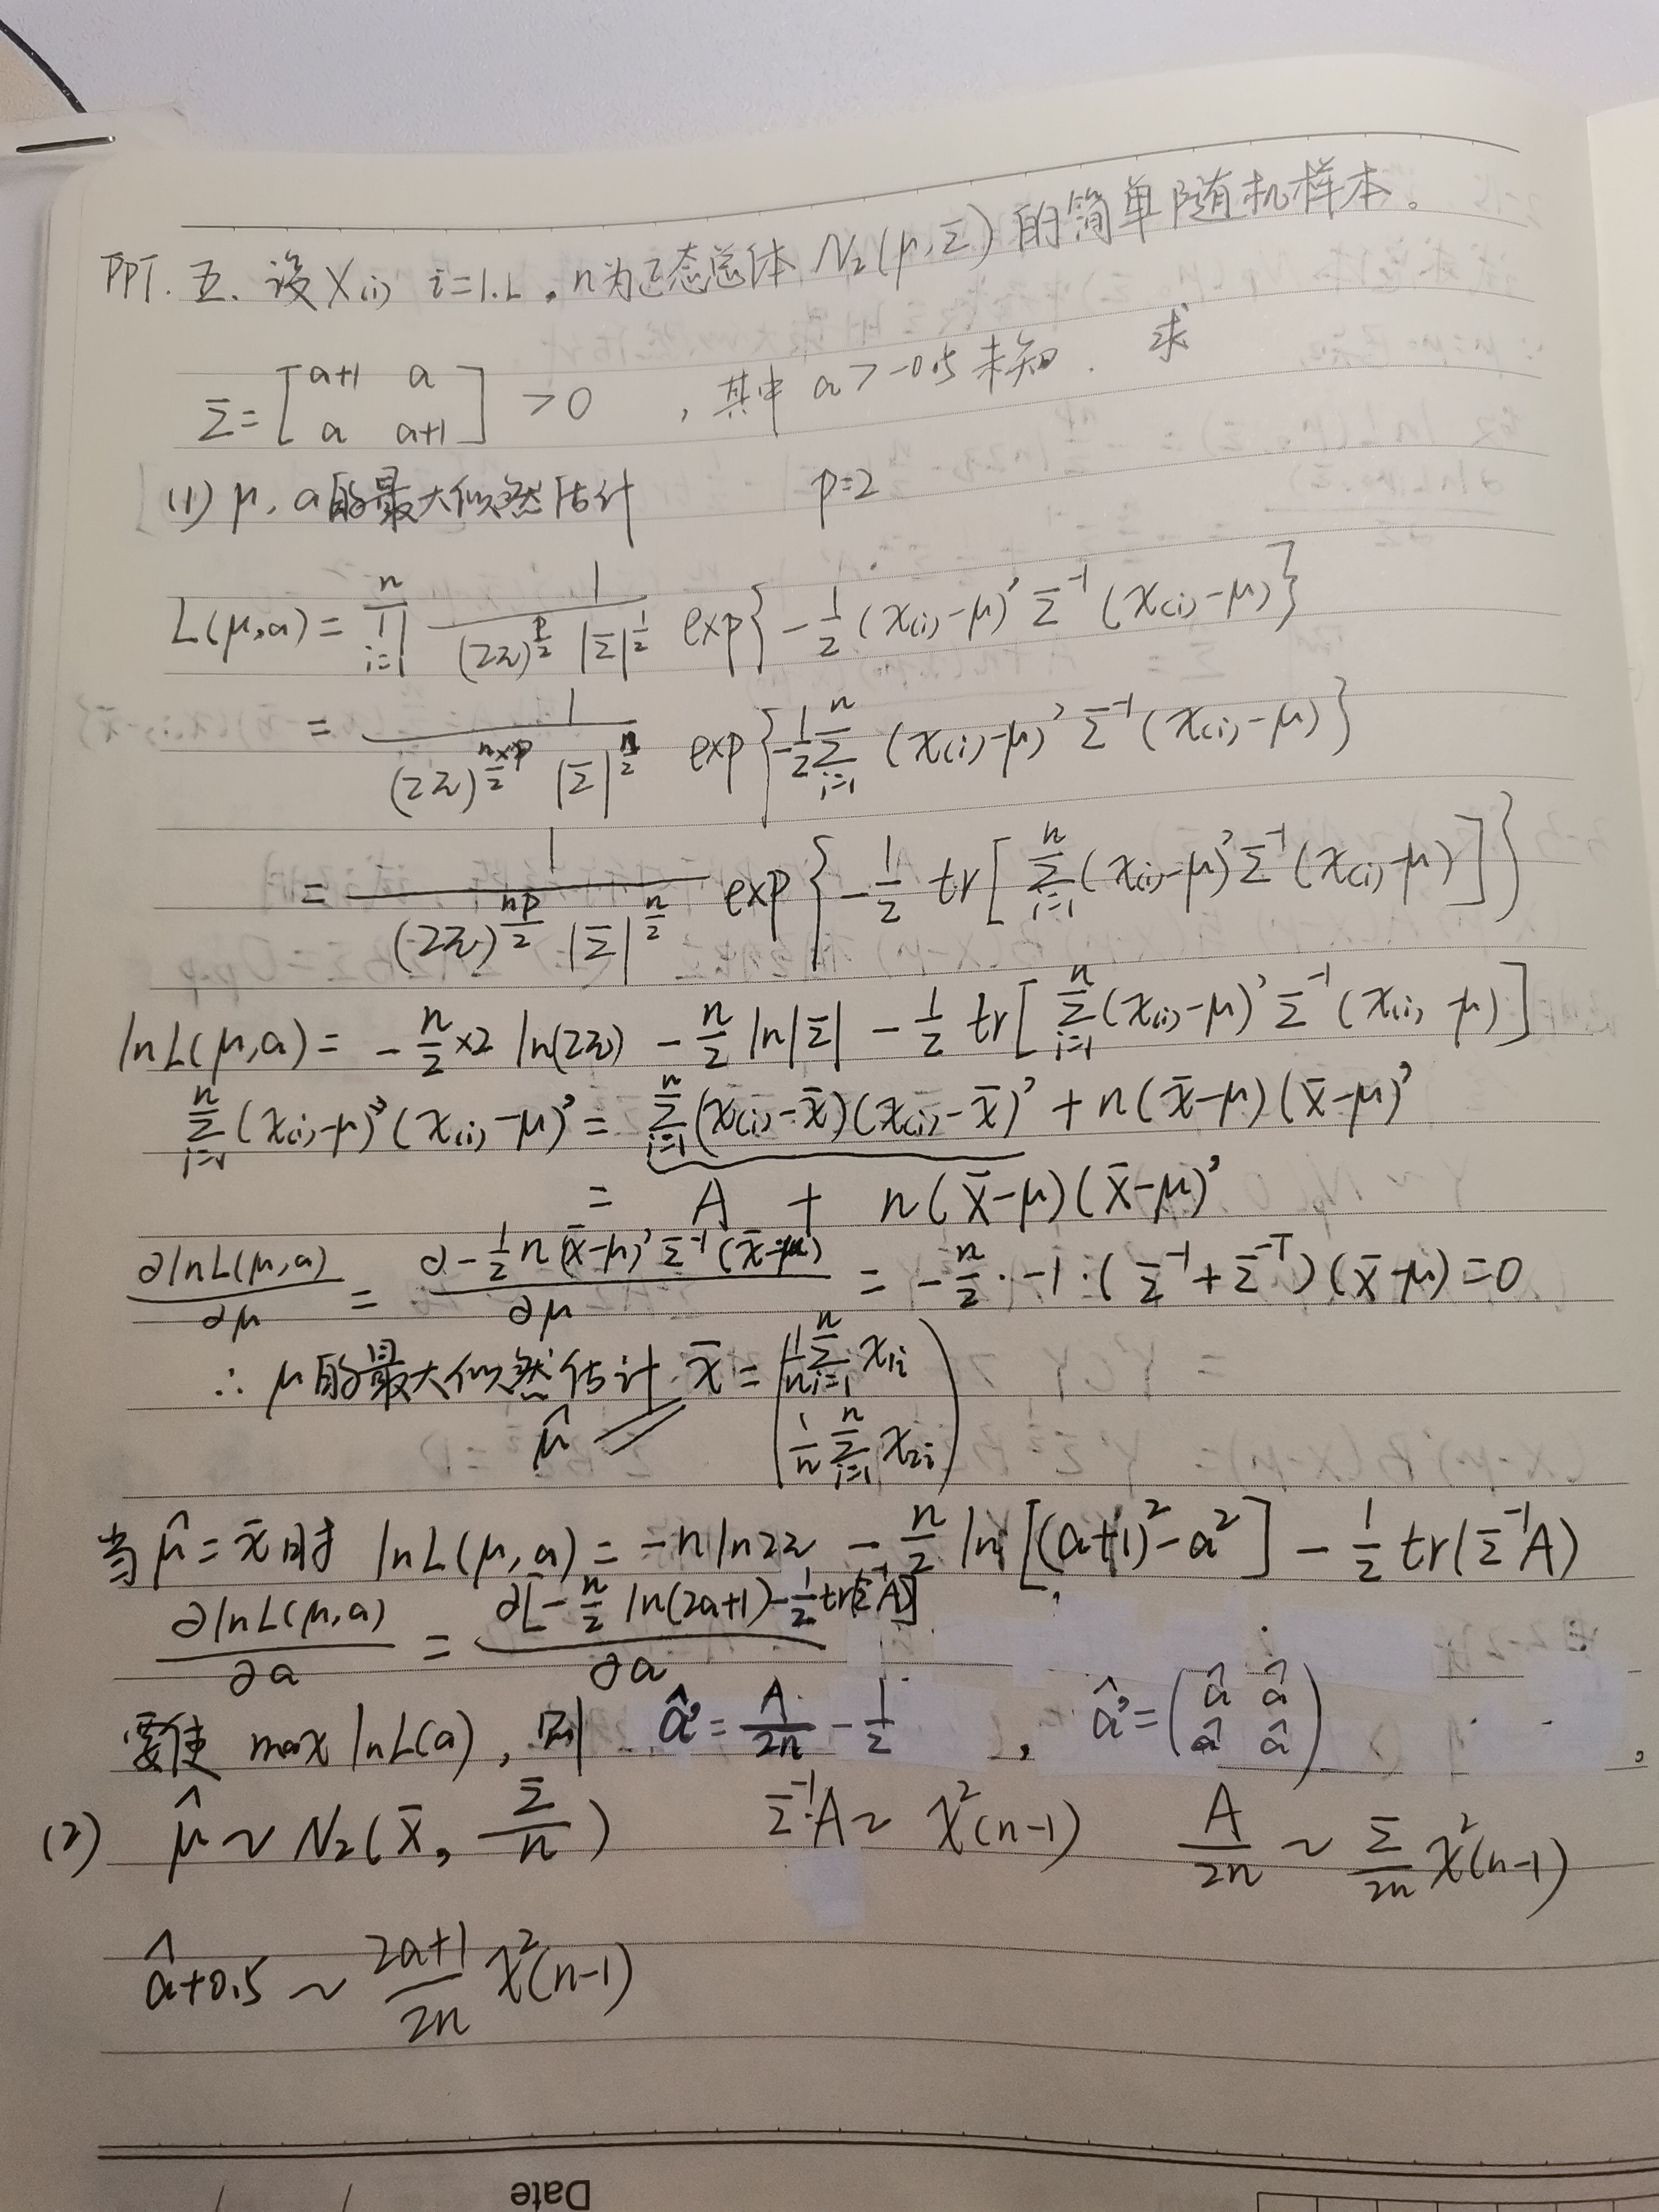 PPT. 五. 设X(i), i=1.2. n为正态总体 N₂(μ,Σ) 的简单随机样本。
Σ=[a+1 a; a a+1] >0 , 其中 a>-0.5 未知. 求
(1) μ, a的最大似然估计 p=2
L(μ,a) = ∏_{i=1}^{n} 1/((2π)^{p/2} |Σ|^{1/2}) exp{-1/2 (x(i)-μ)' Σ^{-1} (x(i)-μ)}
= 1/((2π)^{n×p/2} |Σ|^{n/2}) exp{-1/2 Σ_{i=1}^{n} (x(i)-μ)' Σ^{-1} (x(i)-μ)}
= 1/((2π)^{np/2} |Σ|^{n/2}) exp{-1/2 tr[Σ_{i=1}^{n} (x(i)-μ)' Σ^{-1} (x(i)-μ)]}
lnL(μ,a) = -n/2 ×2 ln(2π) - n/2 ln|Σ| - 1/2 tr[Σ_{i=1}^{n} (x(i)-μ)' Σ^{-1} (x(i) μ)]
Σ_{i=1}^{n} (x(i)-μ)' (x(i)-μ)' = Σ_{i=1}^{n} (x(i)-x̄)(x(i)-x̄)' + n(x̄-μ)(x̄-μ)'
= A + n(x̄-μ)(x̄-μ)'
∂lnL(μ,a)/∂μ = ∂-1/2 n(x̄-μ)' Σ^{-1} (x̄-μ)/∂μ = -n/2 · -1 · (Σ^{-1}+Σ^{-T})(x̄-μ)=0
∴ μ的最大似然估计 x̄ = (1/n Σ_{i=1}^{n} x₁ᵢ; 1/n Σ_{i=1}^{n} x₂ᵢ)
μ̂
当 μ̂=x̄时 lnL(μ,a) = -n ln2π - n/2 ln[(a+1)²-a²] - 1/2 tr(Σ^{-1}A)
∂lnL(μ,a)/∂a = ∂[-n/2 ln(2a+1)-1/2 tr(Σ^{-1}A)]/∂a
要使 max lnL(a), 则 â' = A/2n - 1/2 , â' = (â â; â â) ,
(2) μ̂ ~ N₂(x̄, Σ/n) Σ^{-1}A ~ χ²(n-1) A/2n ~ Σ/2n χ²(n-1)
â+0.5 ~ (2a+1)/2n χ²(n-1)
Date